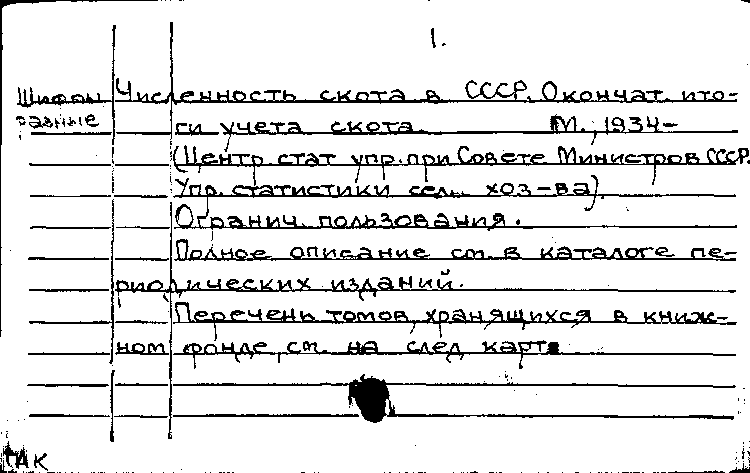 1.
Шифры Численность скота в СССР. Окончат. ито-
разные ги учета скота. М., 1934-
(Центр. стат. упр. при Совете Министров СССР.
Упр. статистики сель. хоз-ва).
Огранич. пользования.
Полное описание см. в каталоге пе-
риодических изданий.
Перечень томов, хранящихся в книж-
ном фонде, см. на след. карт.
АК